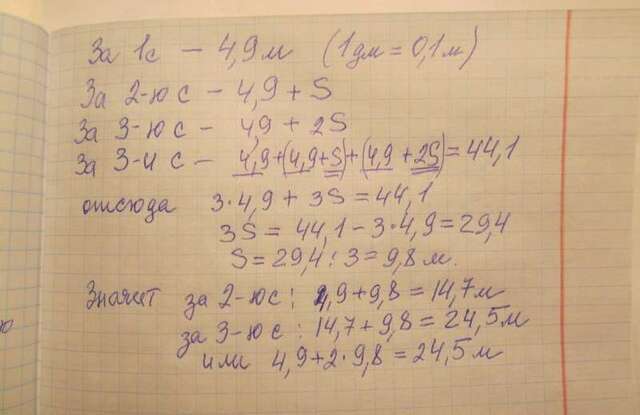 За 1с – 4,9м (1дм = 0,1м)
За 2-ю с – 4,9 + S
За 3-ю с – 4,9 + 2S
За 3-и с – 4,9+(4,9+S)+(4,9+2S)=44,1
отсюда 3·4,9 + 3S = 44,1
3S = 44,1 – 3·4,9 = 29,4
S = 29,4 : 3 = 9,8 м.
Значит за 2-ю с: 4,9+9,8 = 14,7м
за 3-ю с: 14,7+9,8 = 24,5м
или 4,9+2·9,8 = 24,5м
ю